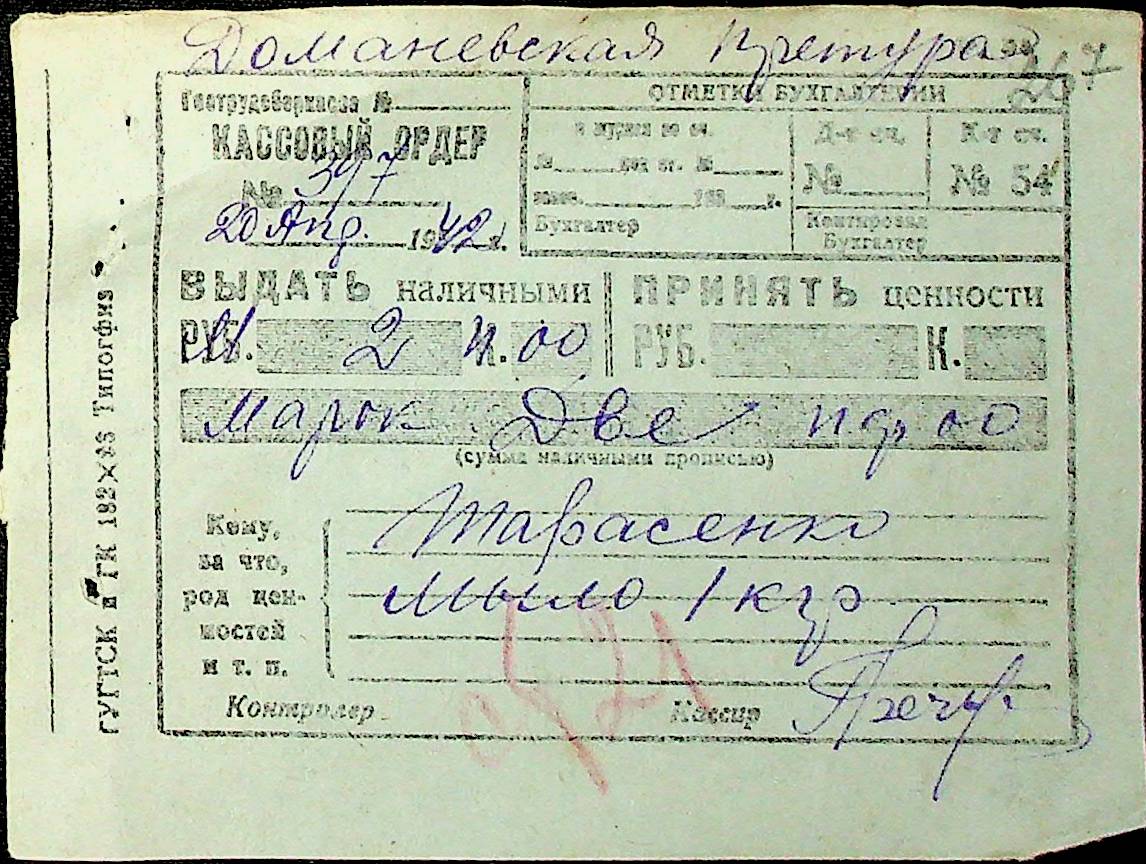 Доманевская претура
267
Гострудсберкасса №
КАССОВЫЙ ОРДЕР
№ 397
20 Апр. 1942 г.
ОТМЕТКИ БУХГАЛТЕРИИ
в журнал по сч.
№ под ст. №
193 г.
Бухгалтер
Д-т сч.
№
К-т сч.
№ 54
Контировал
Бухгалтер
ВЫДАТЬ наличными
РУБ. 2 К. 00
ПРИНЯТЬ ценности
РУБ. К.
Марок Две пф 00
(сумма наличными прописью)
Кому,
за что,
род цен-
ностей
и т. п.
Тарасенко
мыло 1 кгр
Контролер
Кассир
ГУГТСК и ГК 182×33 Типогфия